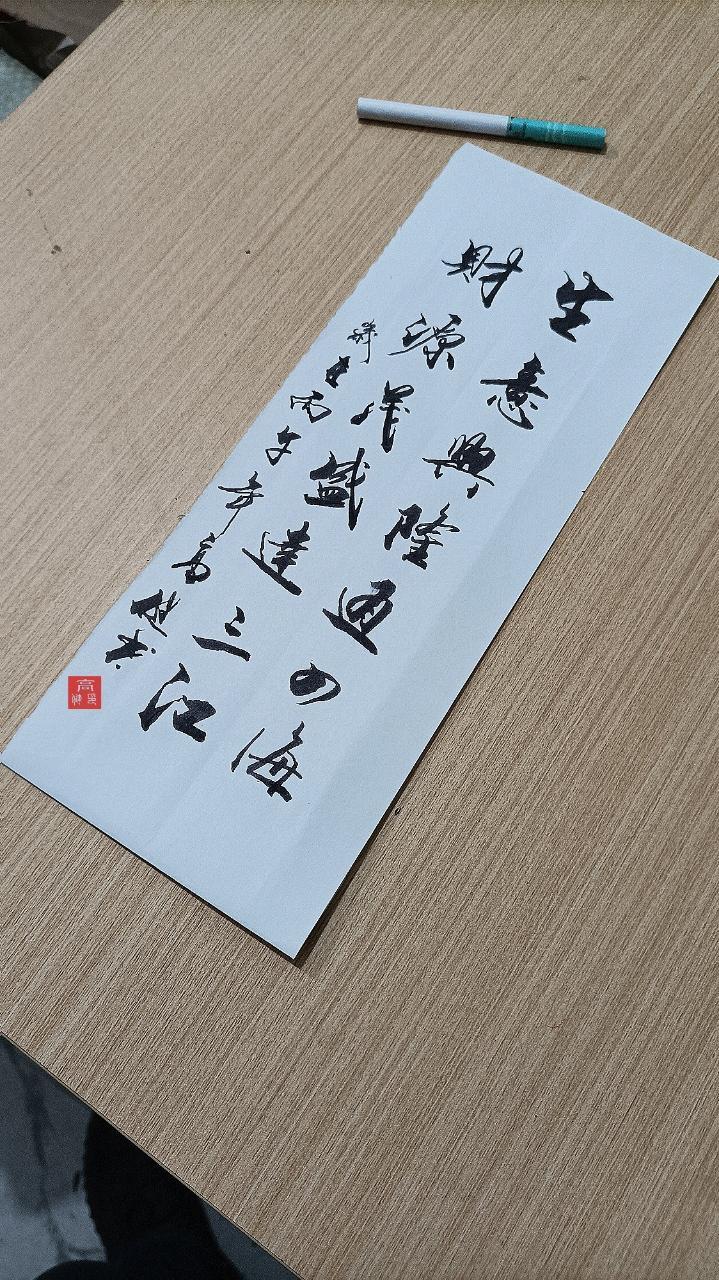 生意興隆通四海
財源茂盛達三江
丙午年高
高